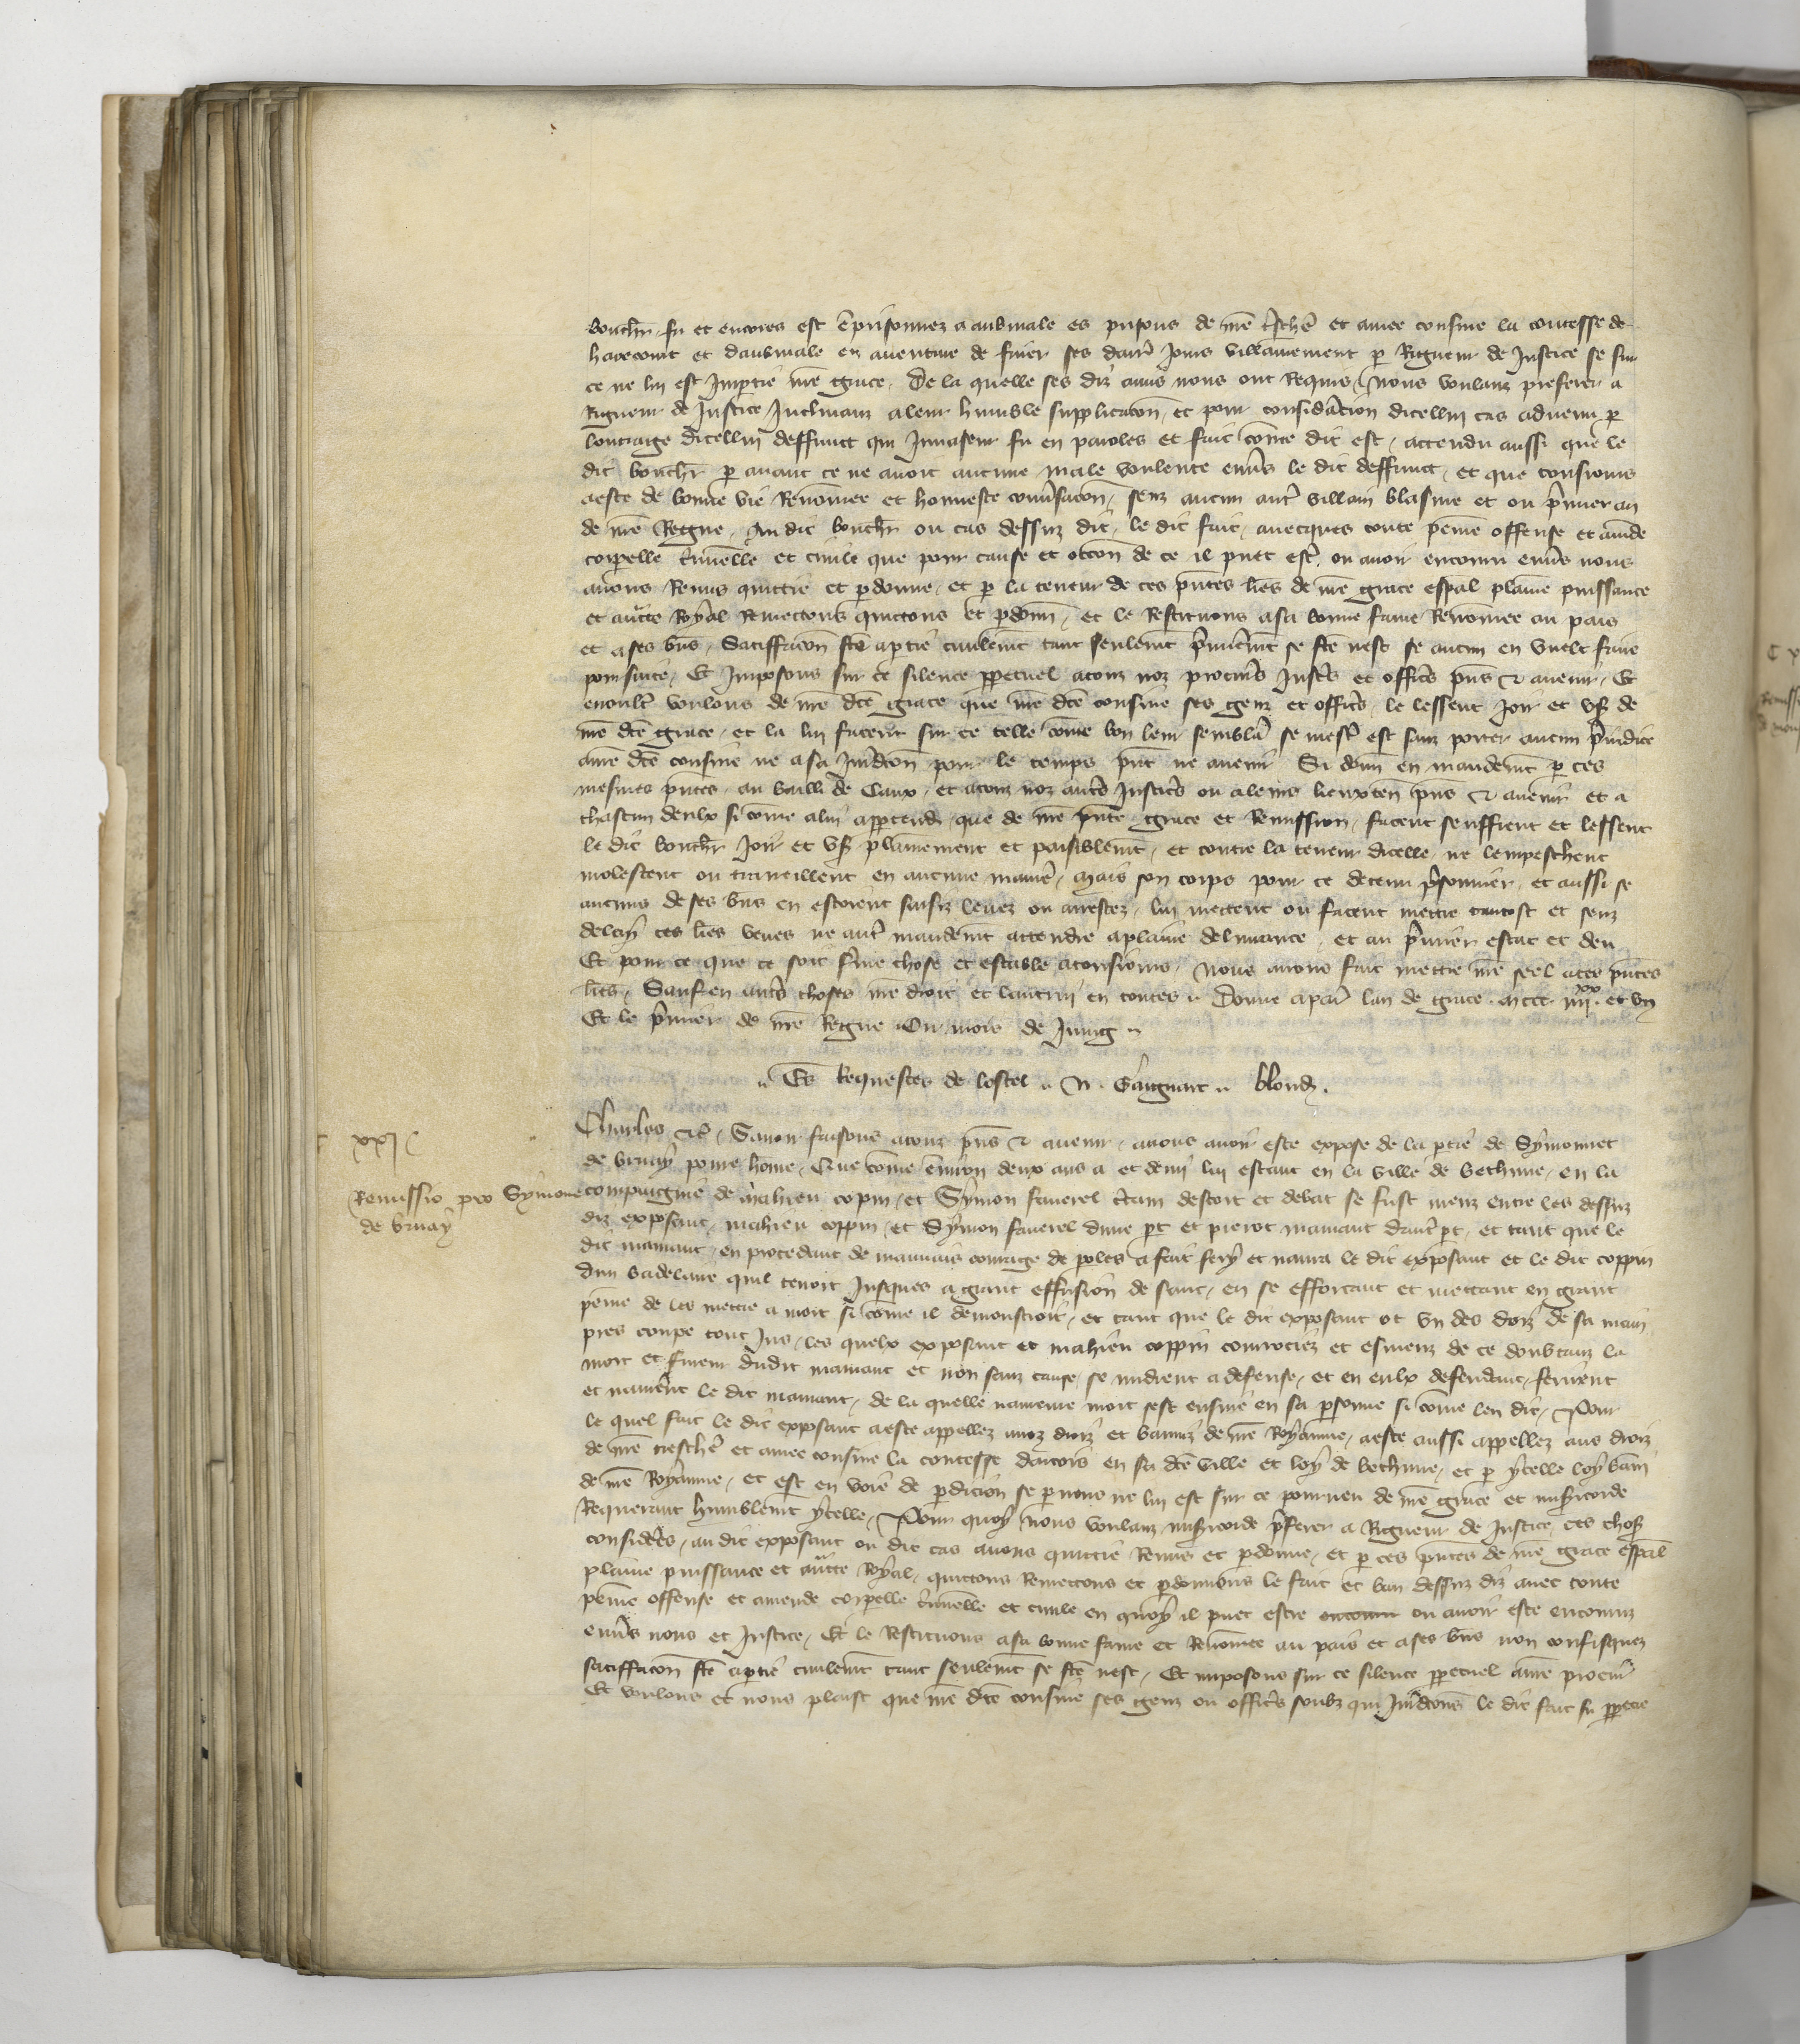 bouch̅r fu et encores est e̅prisonnez a aubmale es prisons de n̅re t̅sch̅e et amee cousine la contesse de
harecourt et daubmale en auenture de finer ses dar̅r̅ iours villainement p̲ Rigueur de Justice se sur
ce ne lui est Impartie n̅re grace. De la quelle ses diz amis nous ont Requis, Nous voulans preferer a
Rigueur de Justice Inclinans a leur humble supplicac̅on, et pour consid̅ac̅ion dicellui cas aduenu p̲
loutraige dicellui deffunct qui Inuaseur fu en paroles et fait co̅me dit est, attendu aussi que le
dit bouch̅r p̲ auant ce ne auoit aucune male voulente enu̅s le dit deffunct, et que tousiours
a este de bonne vie Reno̅mee et honneste conu̅sac̅on, senz aucun aut̅ villain blasme et ou p̅mier an
de n̅re Regne, Au dit bouch̅r ou cas dessuz dit, le dit fait, auecques toute peine offense et am̅de
corp̲elle c̅minelle et ciuile que pour cause et occ̅on de ce il puet est̅, ou auoir encouru enu̅s nous
auons Remis quittie et p̲donne, et p̲ la teneur de ces p̅ntes l̅res de n̅re grace esp̅al plaine puissance
et auc̅te Royal Remettons quittons et p̲donn̅, et le Restituons a sa bonne fame Reno̅mee au pais
et a ses b̅ns, Satiffac̅on f̅te a p̲tie ciuilem̅t tant seulem̅t p̅mierem̅t se f̅te nest se aucun en vuelt faire
poursuite, Et Imposons sur ce silence p̲petuel a touz noz procur̅s Just̅s et offic̅s p̅ns et auenir, Et
enoult̅ voulons de n̅re d̅te grace que n̅re d̅te cousine ses genz et offic̅s, le lessent Joir et vs̅ de
n̅re d̅te grace, et la lui facent sur ce telle co̅me bon leur sembl̅a se mest̅ est sanz porter aucun p̅iudice
a n̅re d̅te cousine ne a sa Jur̅dic̅on pour le temps p̅nt ne auenir Si donn̅ en mandem̅t p̲ ces
mesmes p̅ntes, au bailli de Caux, et a touz noz aut̅s Justic̅s ou a leurs lieuxten̅ p̅ns et auenir et a
chascun deulx si co̅me a lui app̲tend̅, que de n̅re p̅nte grace et Remission, facent seuffrent et lessent
le dit bouch̅r Joir et vs̅ plainement et paisiblem̅t, et contre la teneur dicelle, ne lempeschent
molestent ou traueillent en aucune manie̅, Mais son corps pour ce detenu p̅sonnier, et aussi se
aucuns de ses b̅ns en estoient saisiz leuez ou arrestez, lui mettent ou facent mettre tantost et senz
delay ces l̅res veues ne aut̅ mandem̅t attendre a plaine deliurance, et au p̅mier estat et deu
Et pour ce que ce soit f̅me chose et estable a tousiours, Nous auons fait mettre n̅re seel a ces p̅ntes
l̅res, Sauf en aut̅s choses n̅re droit et lautrui en toutes. Donne a par̅ lan de grace. mccc. iiijxx. et vn
Et le p̅mier de n̅re Regne Ou mois de Juing
Es Requestes de lostel. N. Gaignart. blond̅.
xxj
Remissio pro Symone
de bruay
Charles etc̅. Sauoir faisons a touz p̅ns et auenir, a nous auoir este expose de la p̲tie de Symonnet
de bruay poure ho̅me, Que co̅me enuiron deux ans a et demi lui estant en la ville de bethune, en la
compaignie de mahieu copin, et Symon fauerel c̅tain descort et debat se fust meuz entre les dessuz
diz exposant, mahieu coppin, et Symon fauerel dune p̲t et pierot mamant daut̅ p̲t, et tant que le
dit mamant, en procedant de mauuais courage de p̲oles a fait fery et naura le dit exposant et le dit coppin
dun badelaire quil tenoit Jusques a grant effusion de sanc, en se efforcant et mettant en grant
peine de les mettre a mort si co̅me il demonstroit, et tant que le dit exposant ot vn des doiz de sa main
pres coupe tout Jus, les quelx exposant et mahieu coppin courrociez et esmeuz de ce doubtanz la
mort et fureur dudit mamant et non sanz cause se midrent a defense, et en eulx defendant, ferirent
et naurer̅nt le dit mamant, de la quelle naureure mort sest ensuie en sa p̲sonne si co̅me len dit, Pour
le quel fait le dit exposant a este appellez a noz droiz et banniz de n̅re Royaume, a este aussi appellez aus droiz
de n̅re t̅esch̅e et amee cousine la contesse dartois en sa d̅te ville et loy de bethune, et p̲ ycelle loy bani
de n̅re Royaume, et est en voie de p̲dicion se p̲ nous ne lui est sur ce pourueu de n̅re grace et mis̅icorde
Requerant humblem̅t ycelle, Pour quoy Nous voulanz mis̅icorde p̅ferer a Rigueur de Justice, ces chos̅
consider̅es, au dit exposant ou dit cas auons quittie Remis et p̲donne, et p̲ ces p̅ntes de n̅re grace esp̅al
plaine puissance et auc̅te Royal, quittons Remettons et p̲donnons le fait et ban dessuz diz auec toute
peine offense et amende corp̲elle c̅minelle et ciuile en quoy il puet estre ou auoir este encouruz
enu̅s nous et Justice, Et le Restituons a sa bonne fame et Reno̅mee au pais et a ses b̅ns non confisquez
satiffac̅on f̅te a p̲tie ciuilem̅t tant seulem̅t se f̅te nest, Et imposons sur ce silence p̲petuel a n̅re procur̅
Et voulons et nous plaist que n̅re d̅te cousine ses genz ou offic̅s soubz qui Jur̅dic̅ons le dit fait fu p̲petre